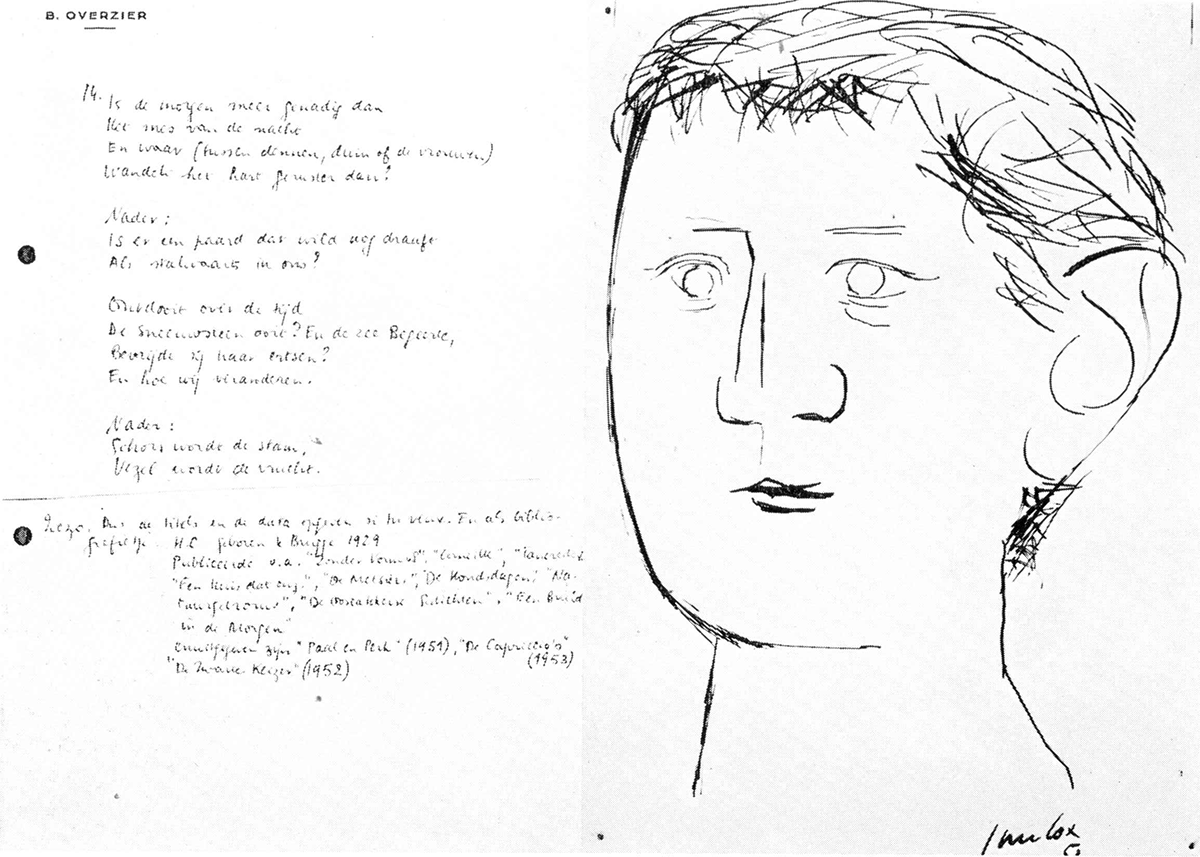 B. OVERZIER
14. Is de morgen meer genadig dan
Het mes van de nacht
En waar (tussen dennen, duin of de vrouwen)
Wandelt het hart geruster dan?
Nader:
Is er een paard dat wild nog draaft
Als stalwaarts in ons?
Ontdooit over de tijd
De Sneeuwsteen ooit? En de zee Begeerte,
Bevrijdt zij haar ertsen?
En hoe wij veranderen.
Nader:
Schors wordt de stam,
Vezel wordt de vrucht.
de titels en de data En als biblio-
H.C geboren te Brugge 1929
Publiceerde o.a. "Zonder Vonnis",
"Een Huis dat", "De Metsiers", "De Hondsdagen", "Na-
tuurgetrouw", "De Oostakkerse Gedichten", "Een Bruid
in de Morgen"
zijn "Paal en Perk" (1951), "De Capriccio's"
(1953)
"De Zwarte Keizer" (1952)
Jan Cox